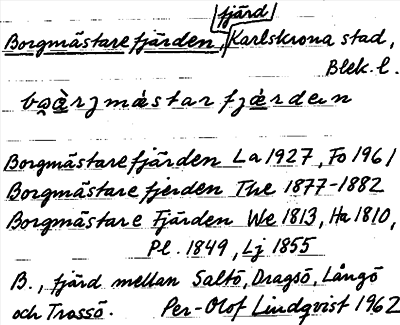 fjärd
Borgmästarefjärden, Karlskrona stad,
Blek. l.
Borgmästarefjärden La 1927, Fo 1961
Borgmästare fjerden The 1877-1882
Borgmästare Fjärden We 1813, Ha 1810,
Pl. 1849, Lj 1855
B., fjärd mellan Saltö, Dragsö, Långö
och Trossö. Per-Olof Lindqvist 1962